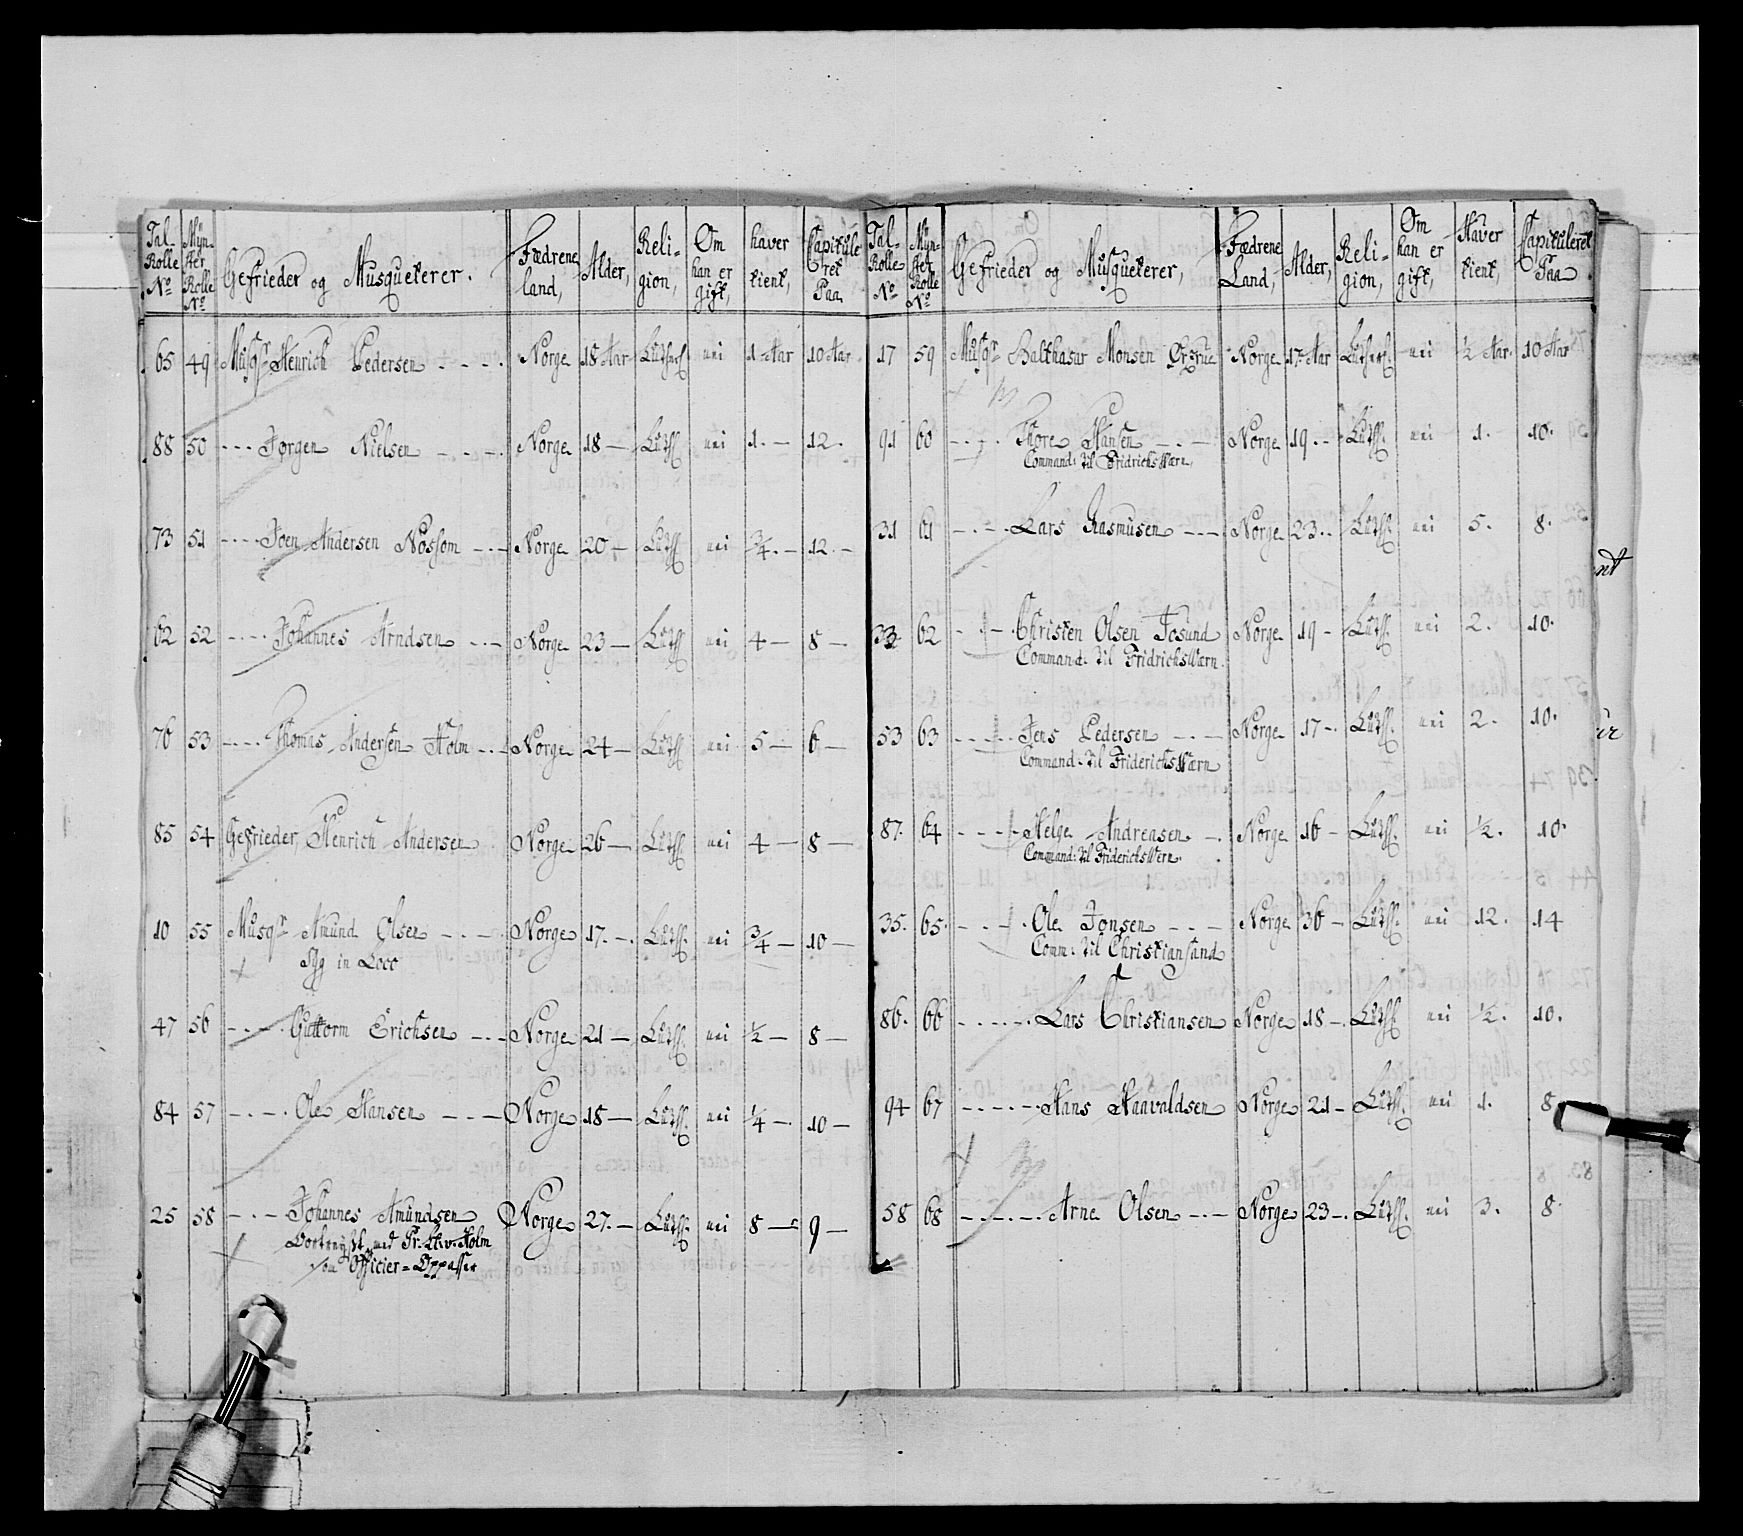 Tal- Rolle No | Myn- ster Rolle No | Gefrieder og Musqueterer. | Fædrene land, | Alder, | Reli- gion, | Om han er gift, | haver tient, | Capitule ret Paa
65 49 Musqr Henrich Pedersen Norge 18 Aar Luthersk nei 1 Aar 10 Aar
88 50 Jørgen Nielsen Norge 18 Luthsk. nei 1. 12.
73 51 Joen Andersen Nossom Norge 20 Luthsk. nei 3/4. 12.
62 52 Johannes Arndsen Norge 23 Luthsk. nei 4 8
76 53 Thomas Andersen Holm Norge 24 Luthsk. nei 5 6
85 54 Gefrieder, Henrich Andersen Norge 26 Luthsk. nei 4 8
10 55 Musqr Amund Olsen Norge 17. Luthsk. nei 3/4 10
Syg in Loco
47 56 Guttorm Erichsen Norge 21 Luthsk. nei 1/2 8
84 57 Ole Hansen Norge 18 Luthsk. nei 1/4 10
25 58 Johannes Amundsen Norge 27. Luthsk. nei 8 9
med Pr: Lt. v: Holm
Officier=Oppasser
Tal- Rolle No | Myn- ster Rolle No | Gefrieder og Musqueterer, | Fædrene Land, | Alder, | Reli- gion, | Om han er gift, | Haver tient, | Capituleret Paa
17 59 Musqr Balthasar Monsen Norge 17 Aar Luthersk. nei 1/2 Aar 10 Aar
91 60 Thore Hansen Norge 19. Luthsk. nei 1. 10.
Command: til FridrichsWærn,
31 61 Lars Rasmusen Norge 23. Luthsk. nei 5. 8.
62 Christen Olsen Josund Norge 19 Luthsk. nei 2. 10.
Command: til FridrichsWærn.
53 63 Jens Pedersen Norge 17 Luthsk. nei 2. 10.
Command: til FriderichsWærn
87. 64 Helge Andreasen Norge 16 Luthsk. nei 1/2. 10.
Command: til FriderichsWern.
35. 65. Ole Jonsen Norge 36 Luthsk. nei 12. 14
Comm: til Christiansand
86. 66 Lars Christiansen Norge 18 Luthsk. nei 1/2. 10.
94 67 Hans Haavaldsen Norge 21 Luthsk. nei 1. 8
58 68 Arne Olsen Norge 23 Luthsk. nei 3. 8.